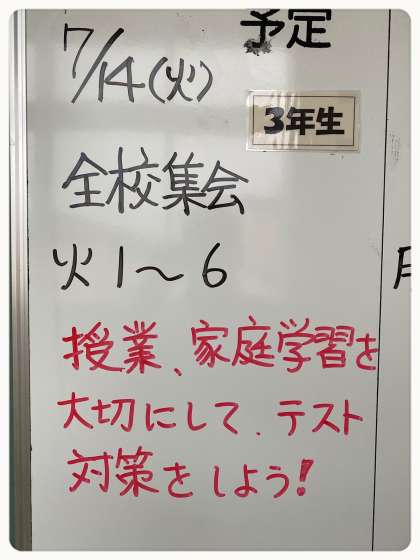 予定
7/14(火)
3年生
全校集会
火1〜6
授業、家庭学習を
大切にして、テスト
対策をしよう!